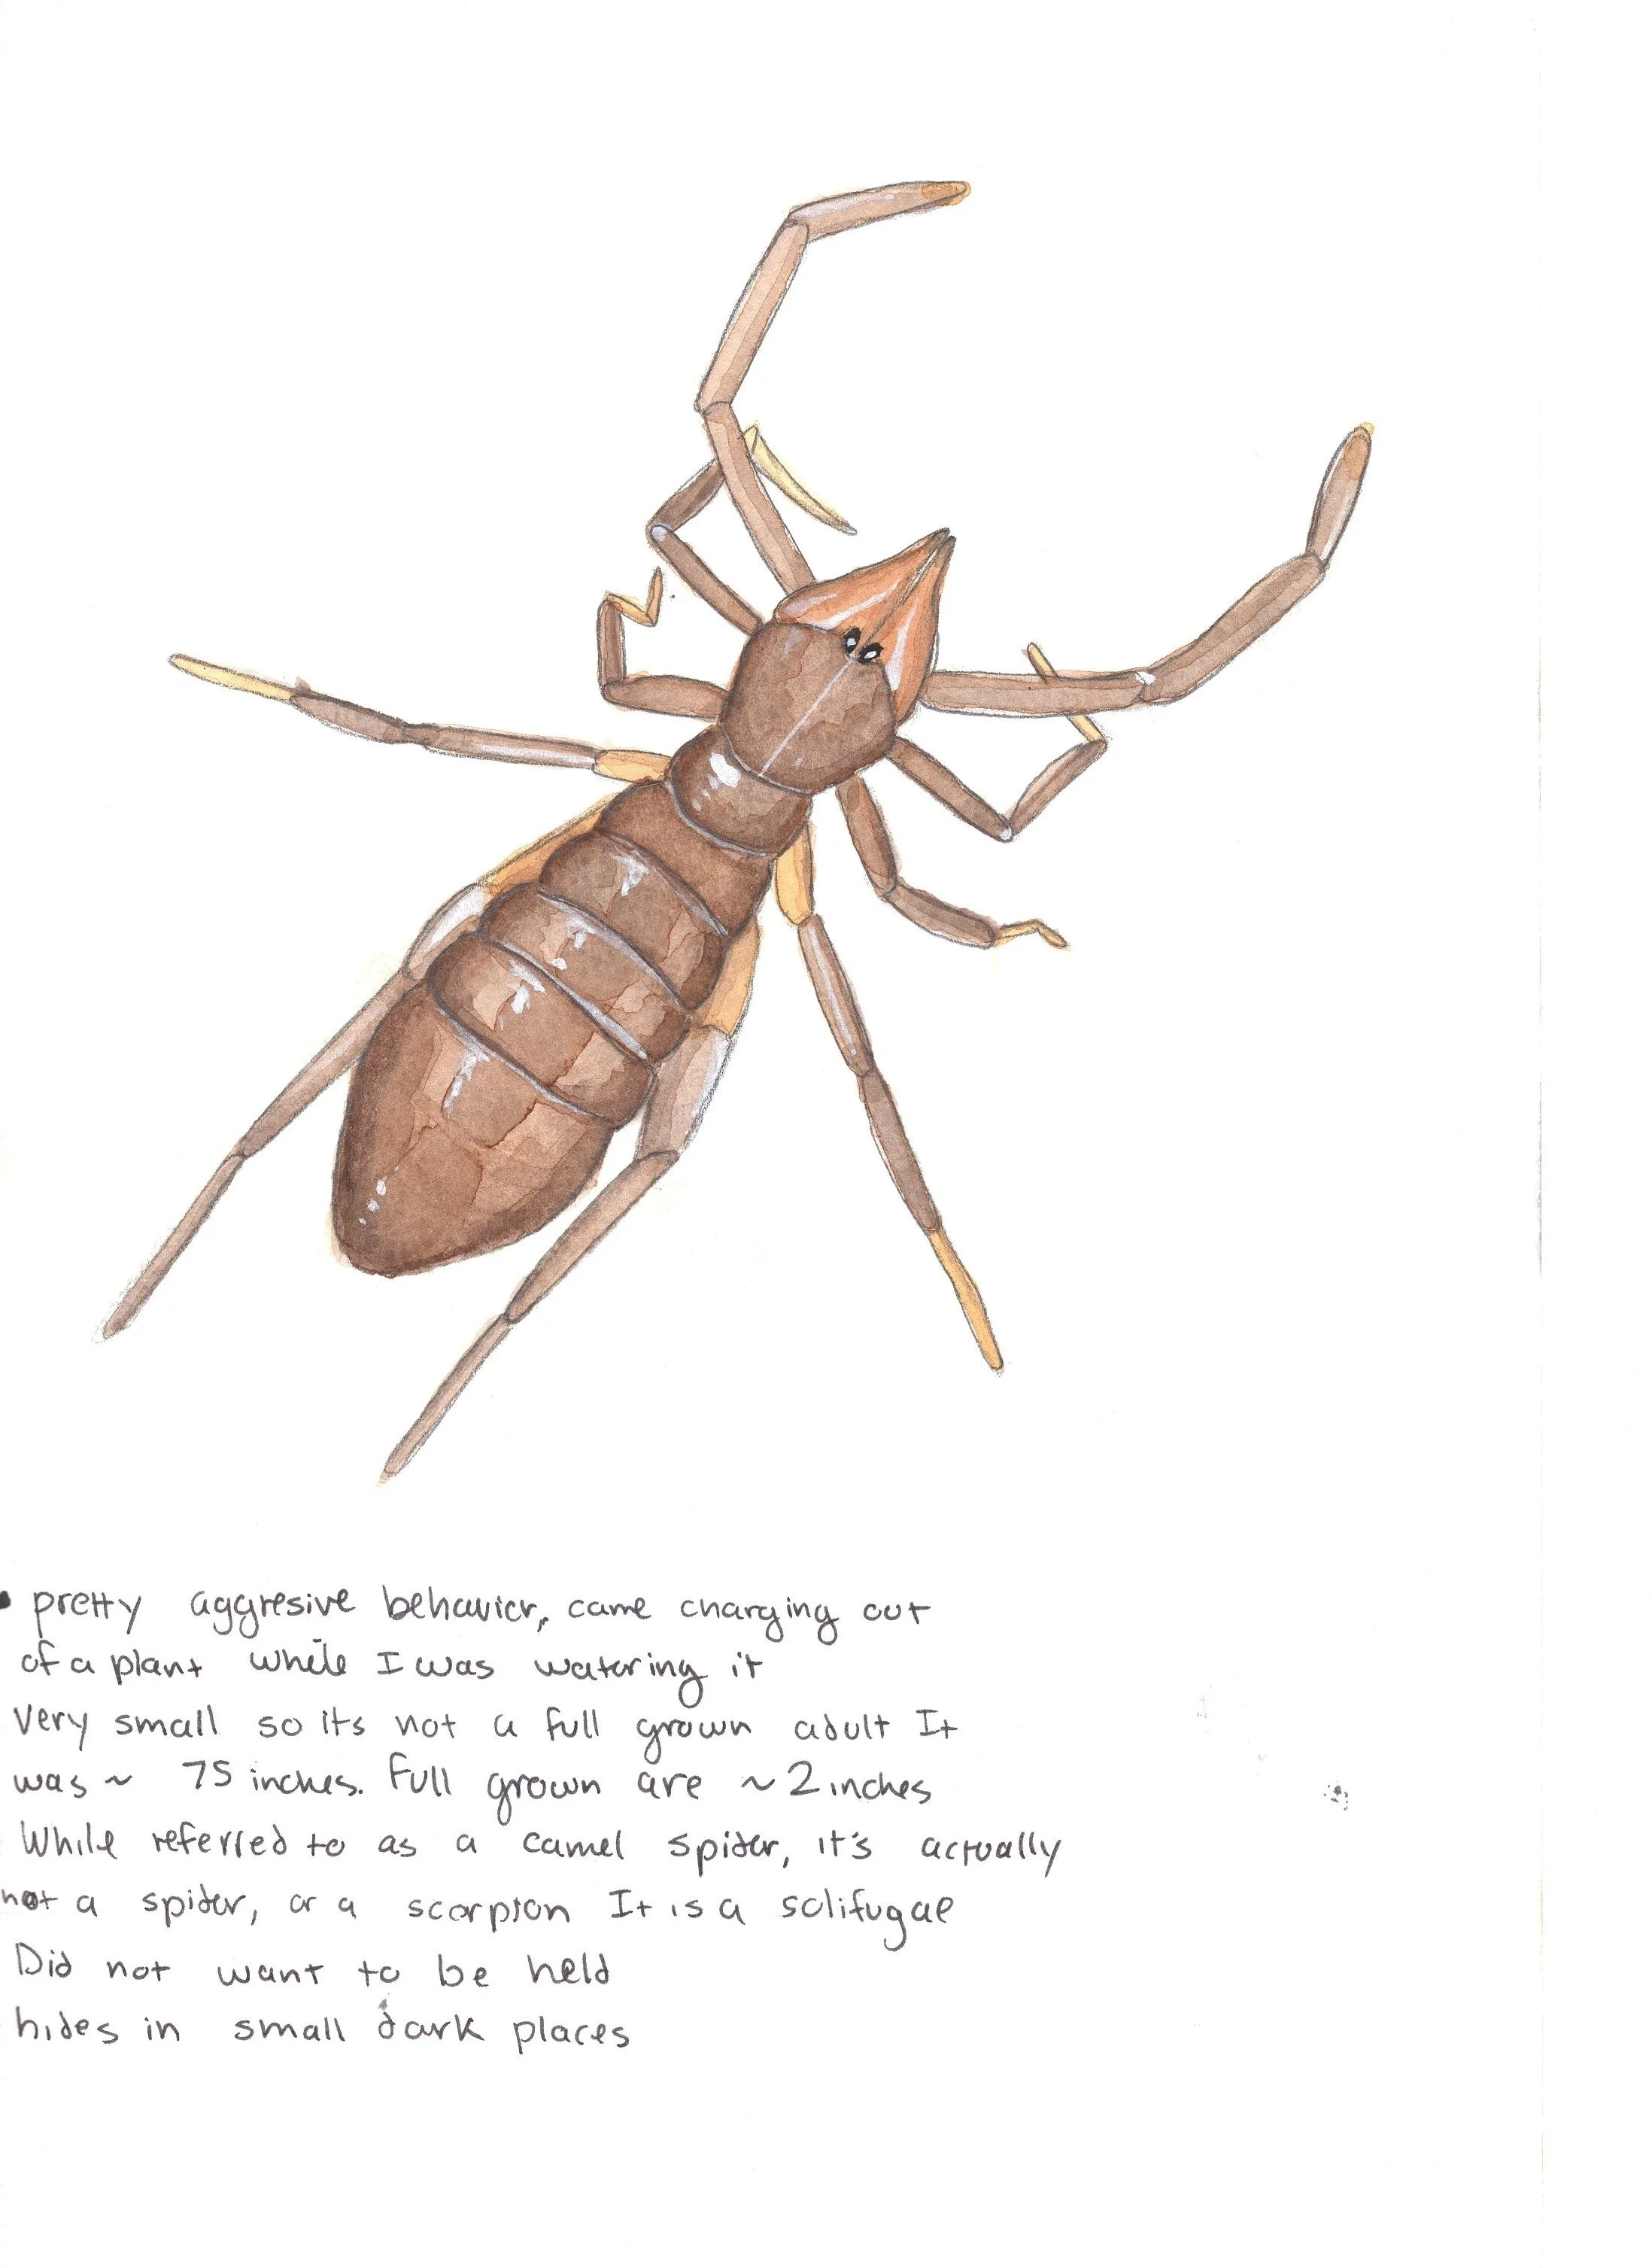 • pretty aggresive behavior, came charging out
of a plant while I was watering it
Very small so its not a full grown adult It
was ~ 75 inches. Full grown are ~2 inches
While referred to as a camel spider, it's actually
not a spider, or a scorpion It is a solifugae
Did not want to be held
hides in small dark places